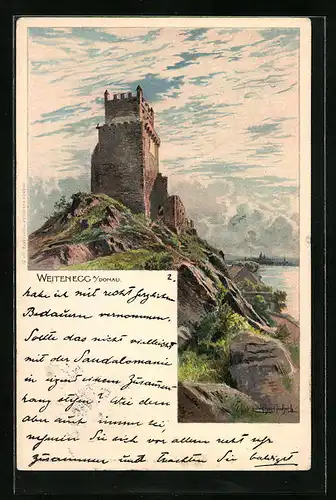 WEITENEGG a/DONAU.
2.
habe ich mit recht herzlichem
Bedauern vernommen.
Sollte das nicht vielleicht
mit der Sandalomanie
in irgend einem Zusammen-
hang stehen? Wie dem
aber auch immer sei,
nehmen Sie sich vor allem recht sehr
zusammen und trachten Sie baldigst